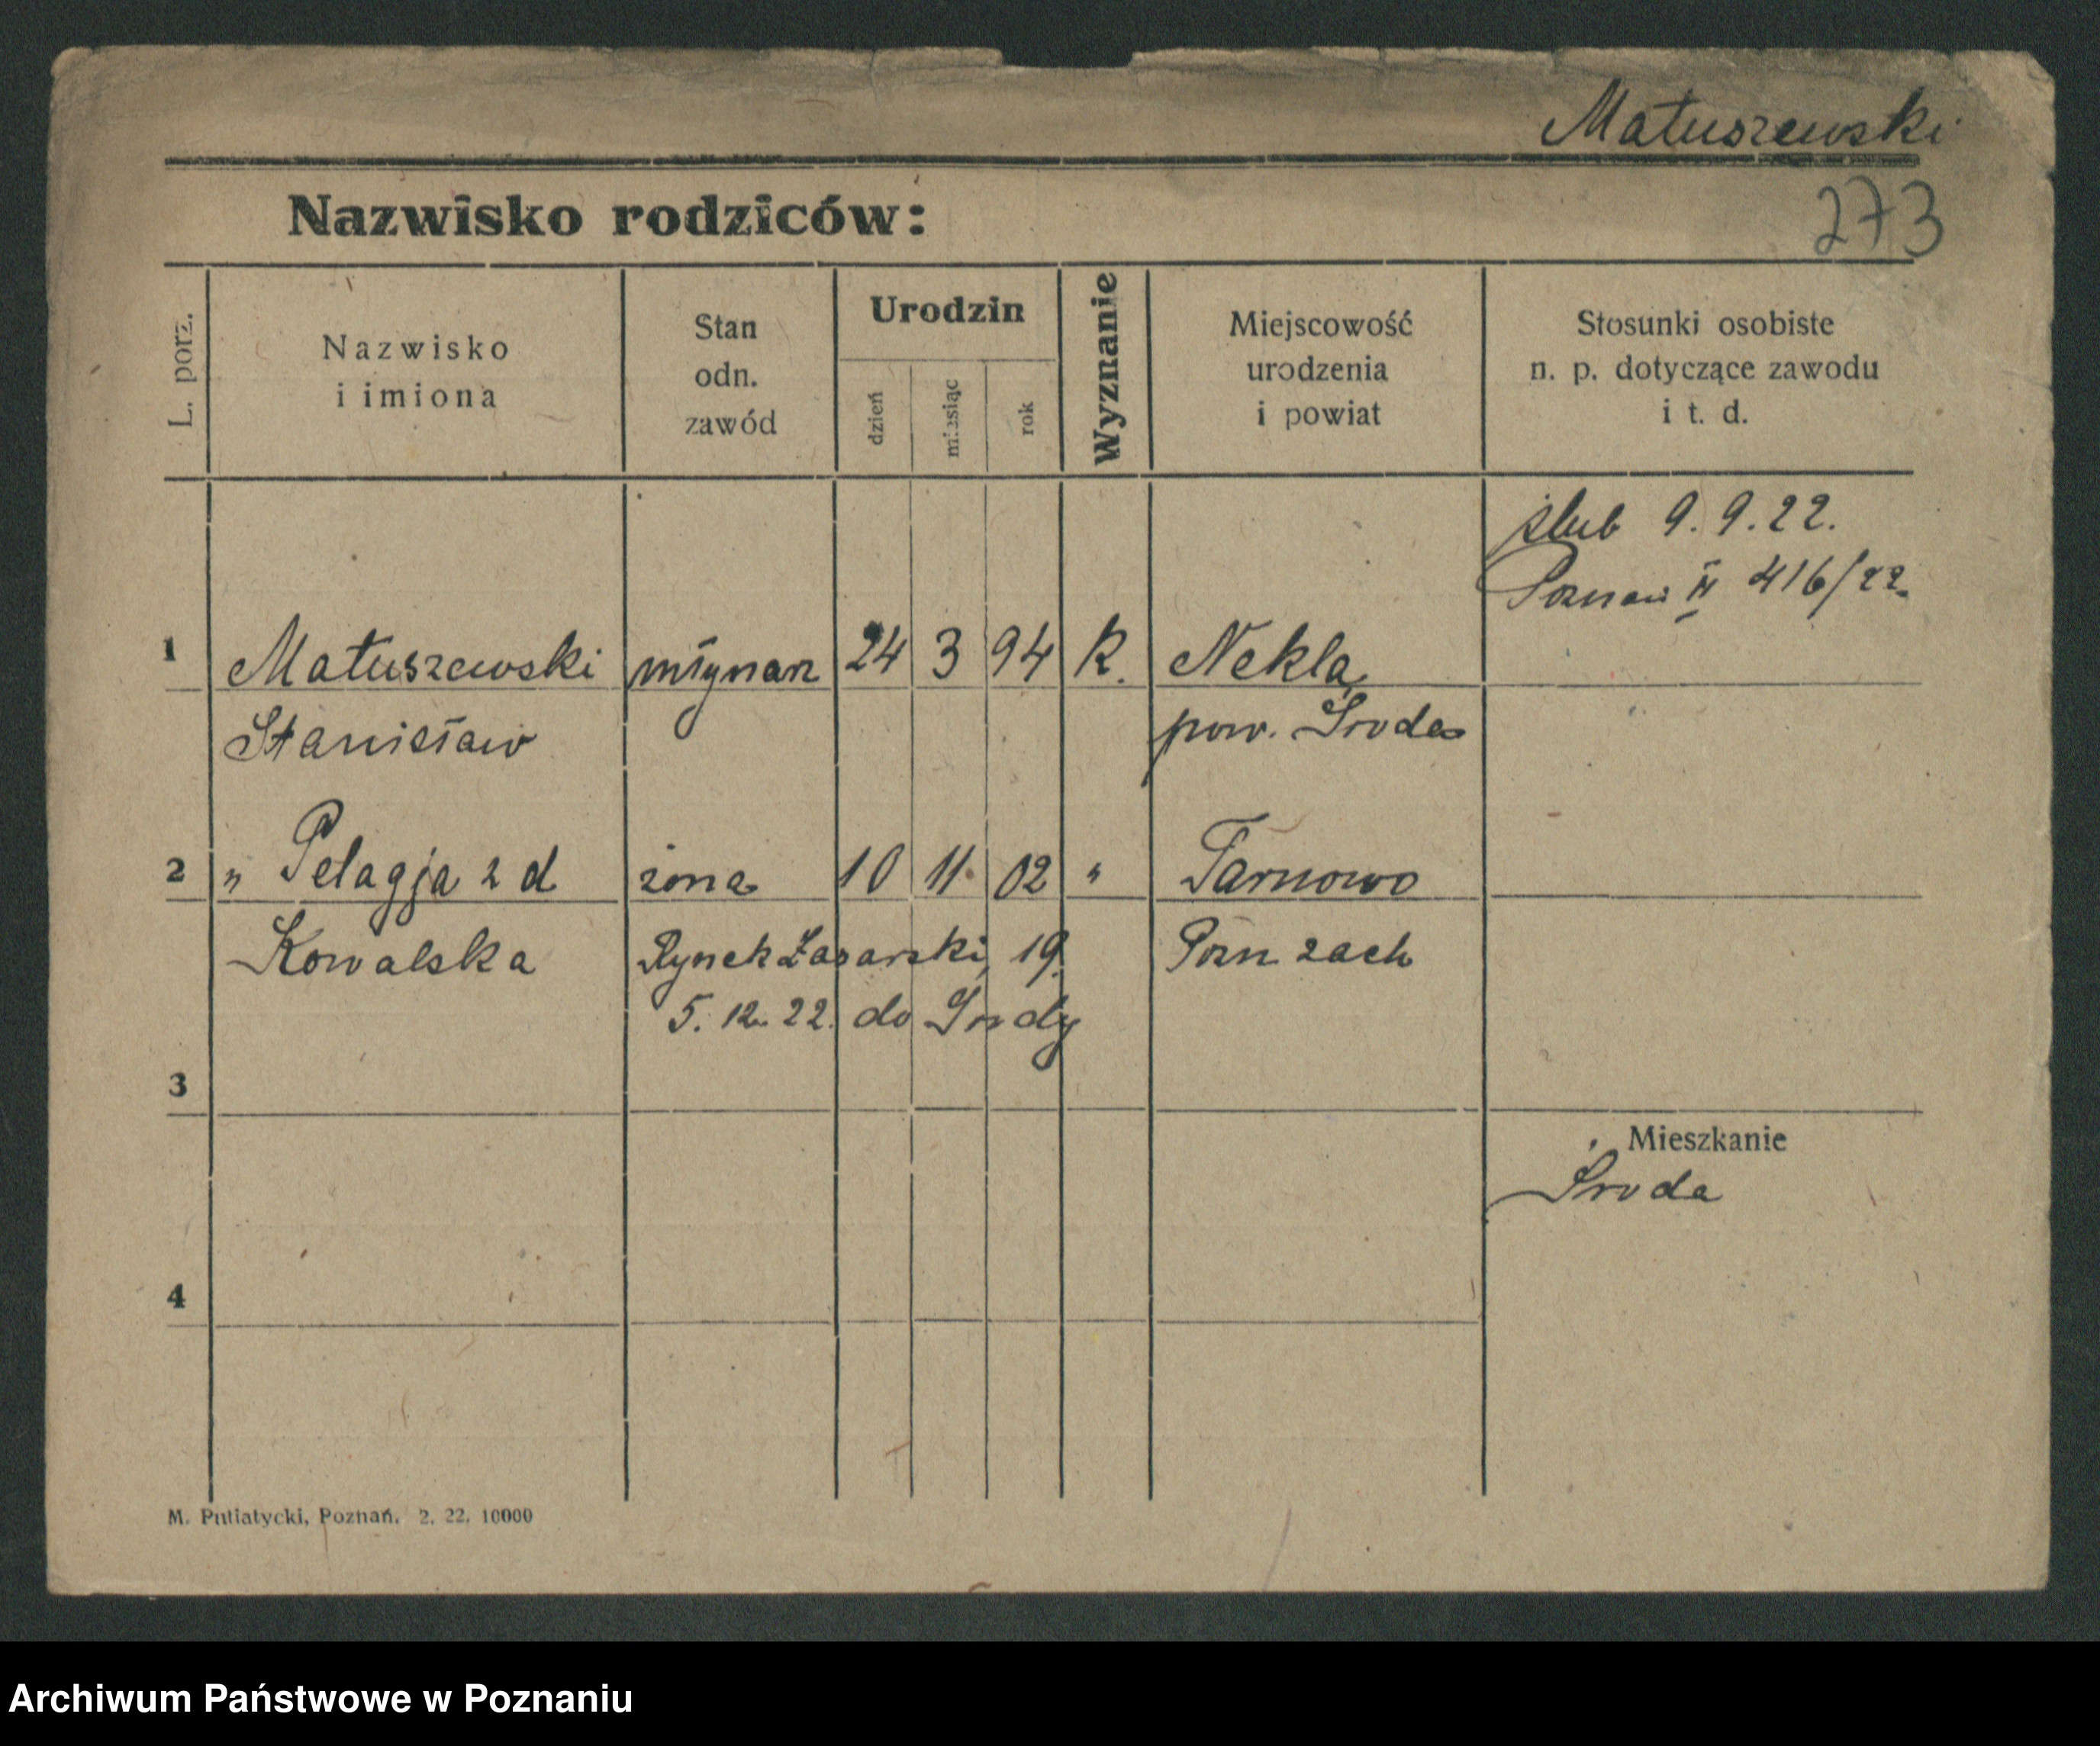 Matuszewski
273
Nazwisko rodziców:
L. porz.
Nazwisko
i imiona
Stan
odn.
zawód
Urodzin
dzień
miesiąc
rok
Wyznanie
Miejscowość
urodzenia
i powiat
Stosunki osobiste
n. p. dotyczące zawodu
i t. d.
ślub 9.9.22.
Poznań II 416/22.
1 Matuszewski młynarz 24 3 94 k. Nekla
Stanisław pow. Środa
2 " Pelagja z d żona 10 11 02 " Tarnowo
Kowalska Rynek Łazarski, 19. Pozn zach
5. 12. 22. do Środy
3
Mieszkanie
Środa
4
M. Putiatycki, Poznań. 2. 22. 10000
Archiwum Państwowe w Poznaniu